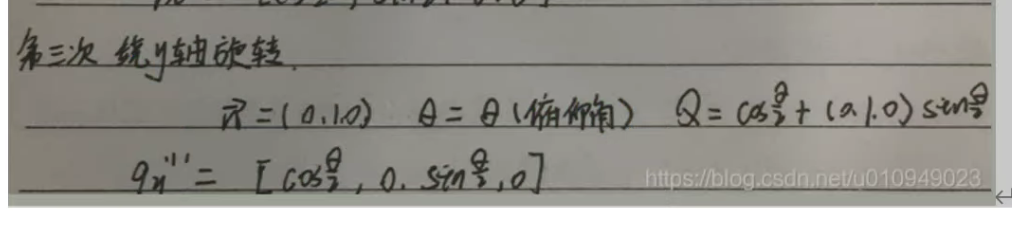 第三次 绕y轴旋转.
n⃗ = (0.1.0) θ = θ (俯仰角) Q = cos θ/2 + (0.1.0) sin θ/2
q_n''' = [cos θ/2, 0. sin θ/2, 0]
https://blog.csdn.net/u010949023